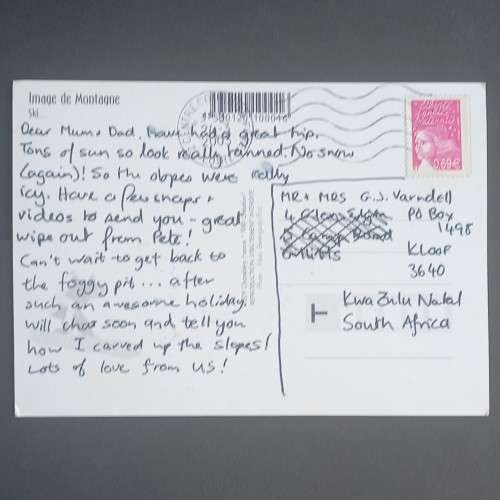 Image de Montagne
Ski...
Dear Mum & Dad, Have had a great trip.
Tons of sun so look really tanned. No snow
(again)! So the slopes were really
icy. Have a few snaps +
videos to send you - great
wipe out from Pete!
Can't wait to get back to
the foggy pit... after
such an awesome holiday.
Will chat soon and tell you
how I carved up the slopes!
Lots of love from us!
MR + MRS G.J. Varndell
PO Box
1498
Kloof
3640
KwaZulu Natal
South Africa
0,69€